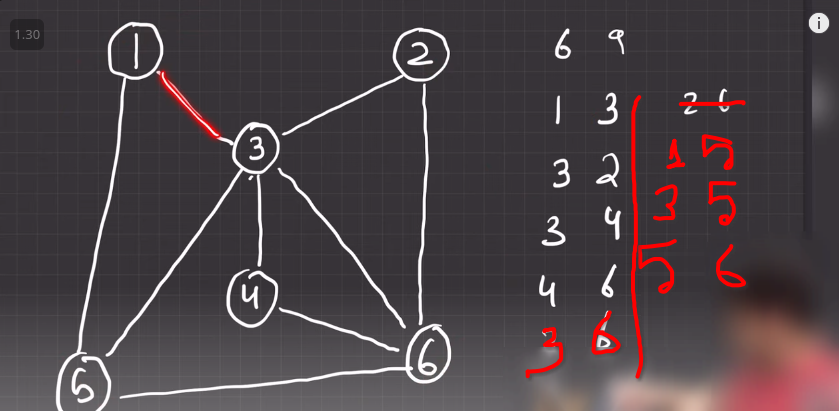 1.30
1
2
3
4
5
6
6 9
1 3
3 2
3 4
4 6
3 6
2 6
1 5
3 5
5 6